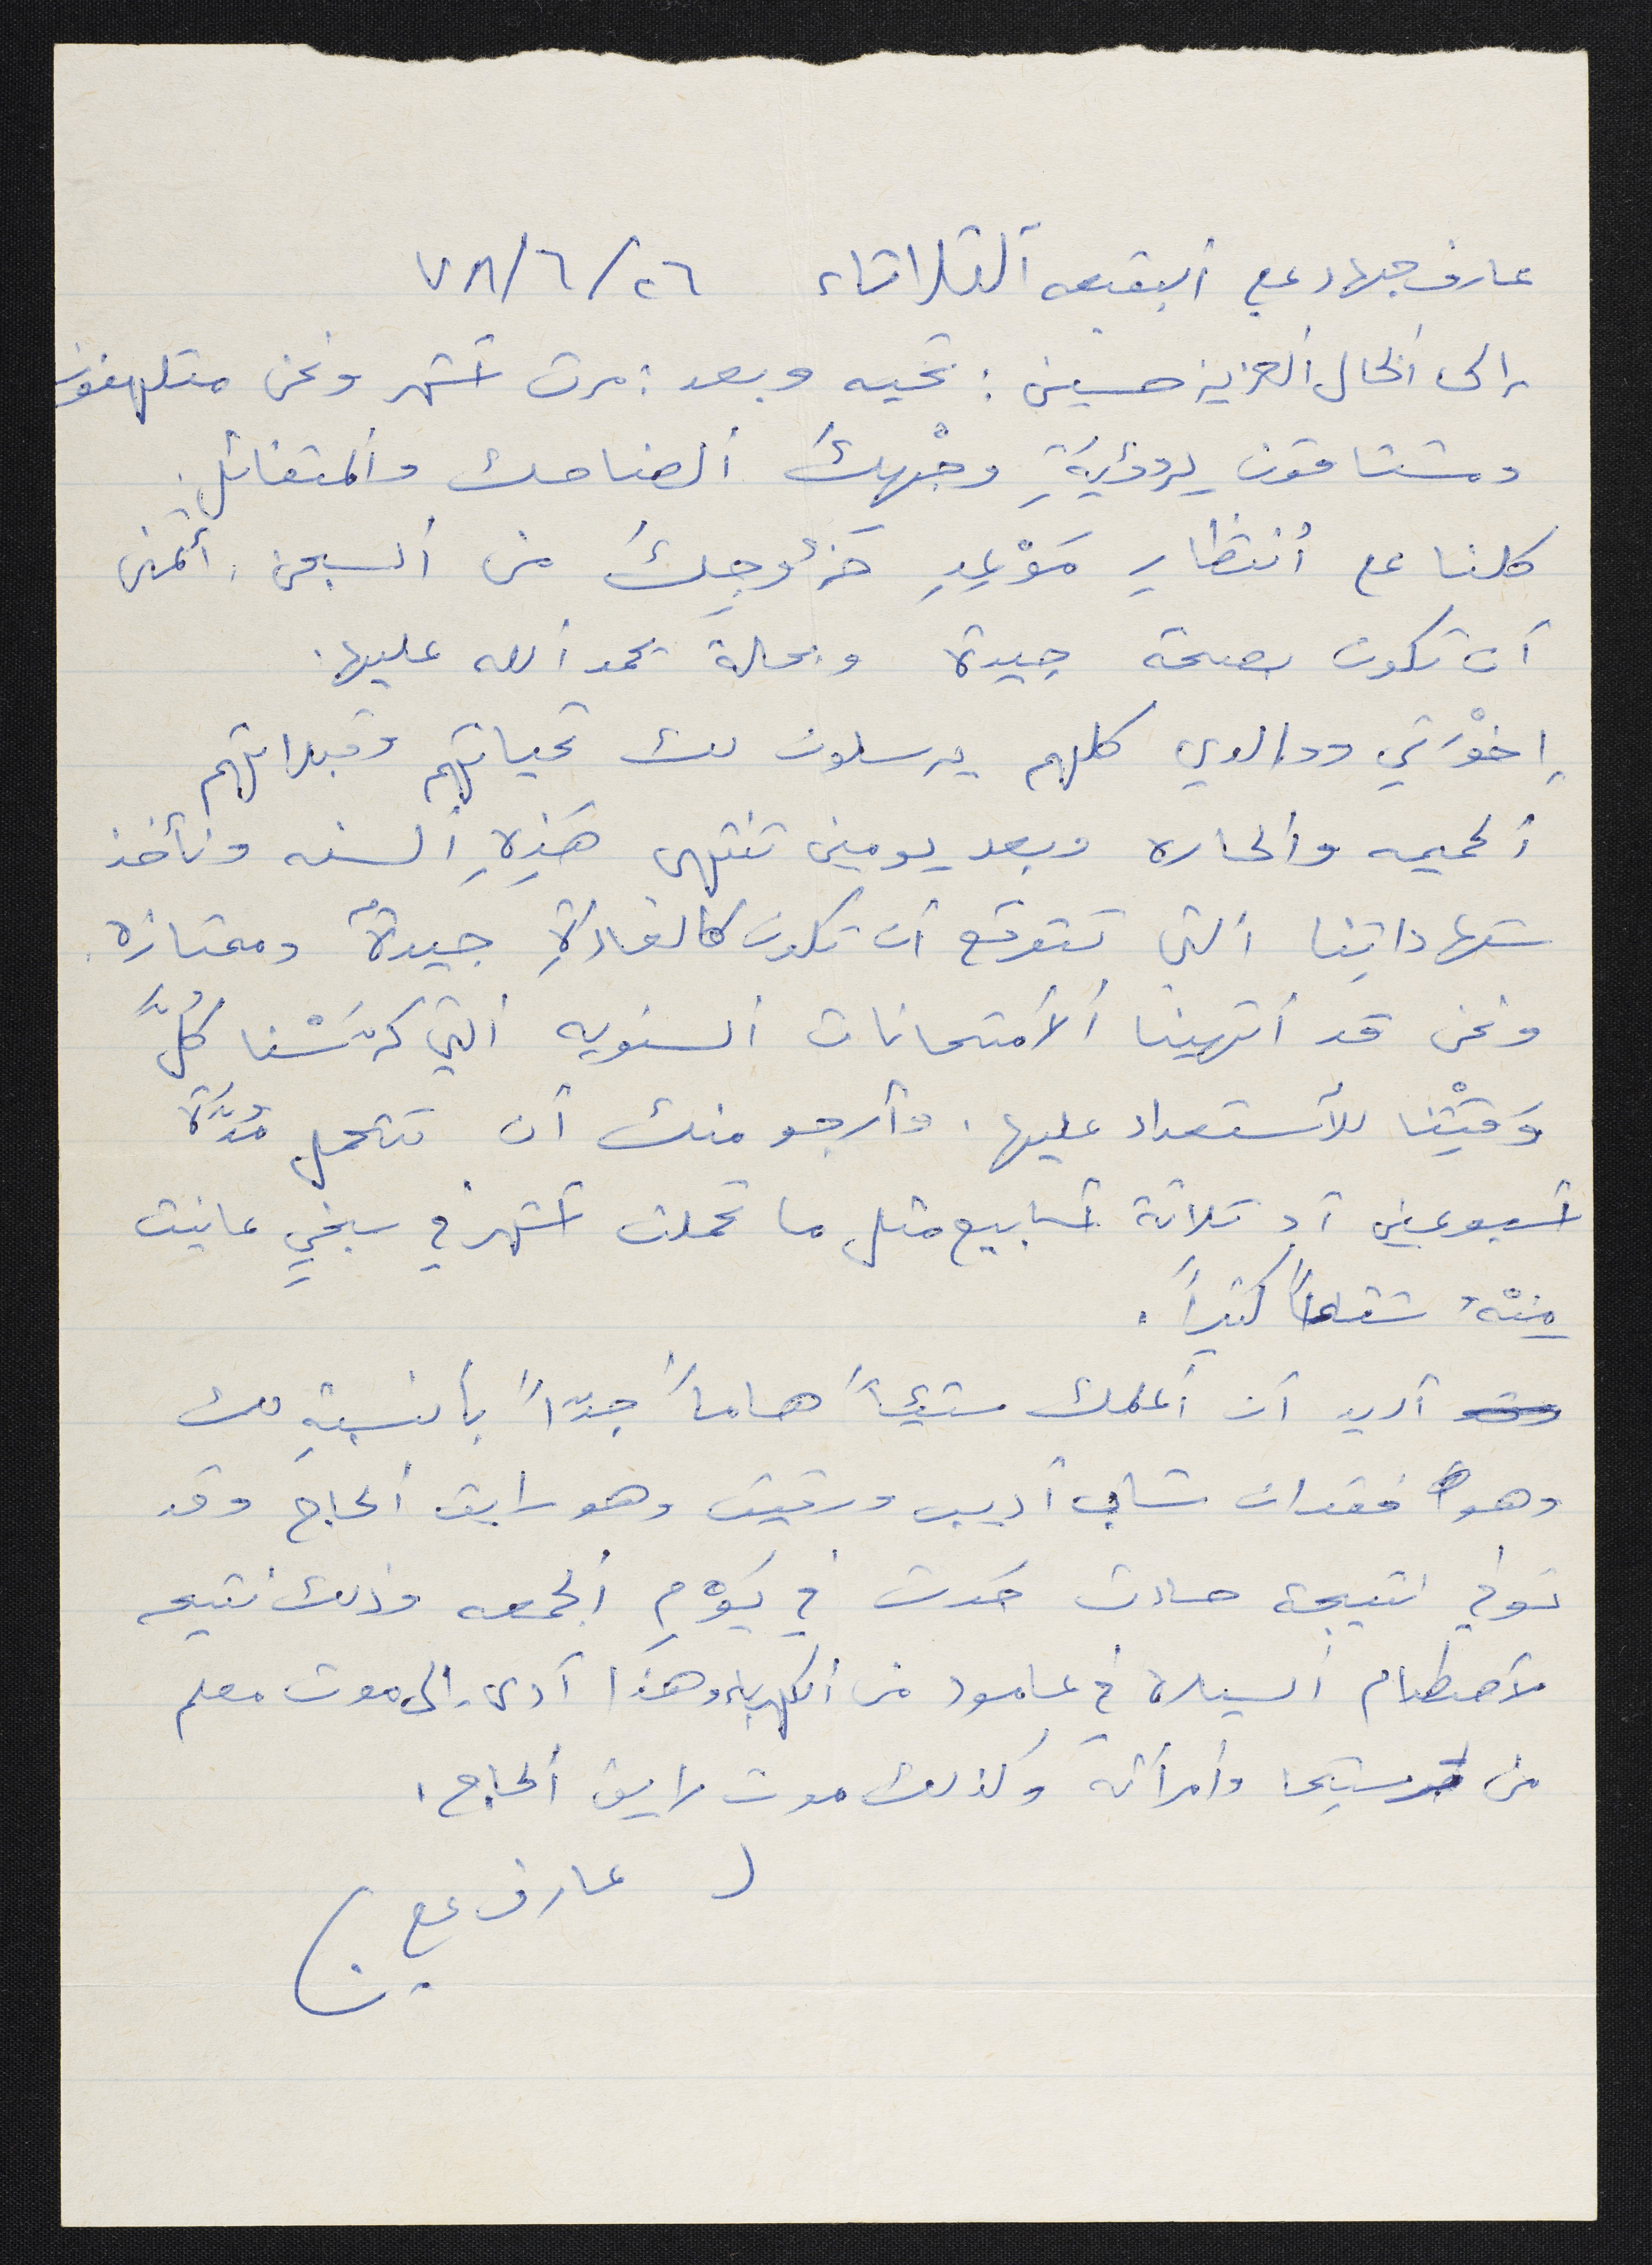 عارف جهاد علي البقيعه الثلاثاء ٢٦/٦/٧٨
إلى الخال العزيز حسين: تحيه وبعد: مرت أشهر ونحن متلهفون
ومشتاقون لِرؤيةِ وجْهكَ الضاحك والمتفائل.
كلنا على أنتظارِ مَوْعِدِ خَرُوجِكَ من السجن. أتمنى
أن تكون بصحة جيدة وبحالة يحمد الله عليها.
إخْوَتي ووالدي كلهم يرسلون لك تحياتهم وقبلاتهم
الحميمه والحاره وبعد يومين تنتهي هَذِهِ السنه ونأخذ
شهاداتِنا التي نتوقع أن تكون كالعادَةِ جيدةً وممتازه.
ونحن قد أنهينا ألأمتحانات السنويه التي كرّسْنا كُلَّ
وَقتِْنا للأستعداد عليها. وأرجو منك أن تتحمل مُدَّةَ
أسبوعين أو ثلاثة أسابيع مثل ما تحملت أشهر في سجنٍ عانيت
مِنْهُ كثيراً.
أريد أن أعلمك شيئاً هاماً جدّاً بالنسبةِ لك
وهو فقدان شاب أديب ورقيق وهو رايق الحاج وقد
توفي نتيجة حادث حَدث في يَوْمِ الجمعه وذلك نتيجه
لأصطدام السيارة في عامود من الكهرباء وهَذا أدى إلى موت معلم
من ترشيحا وأمرأته وكذلك موت رايق الحاج.
( عارف علي )